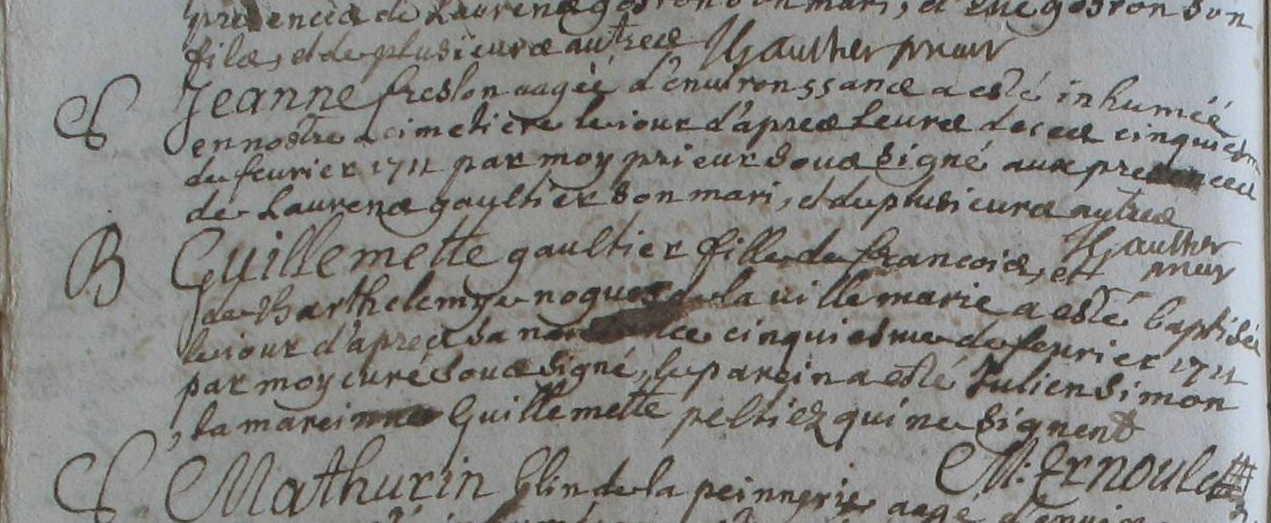 presence de Laurens gosron son mari, et gosron son
fils, et de plusieurs autres JGaultier prieur
S Jeanne freslon aagée d'environ 55 ans a esté inhumée
en nostre cimetiere le iour d'apres deces cinquiesme
de fevrier 1711 par moy prieur sous signé aux presences
de Laurens gaultier son mari, et de plusieurs autres
JGaultier
prieur
B Guillemette gaultier fille de francois, et
de Barthelemye de la ville marie a esté baptisée
le iour d'apres sa cinquiesme de fevrier 1711
par moy curé sous signé, le parein a esté Julien Simon
, la mareinne Guillemette peltier qui ne signent
M: Ernoul
S Mathurin blin de la peinnerie aagé d'environ